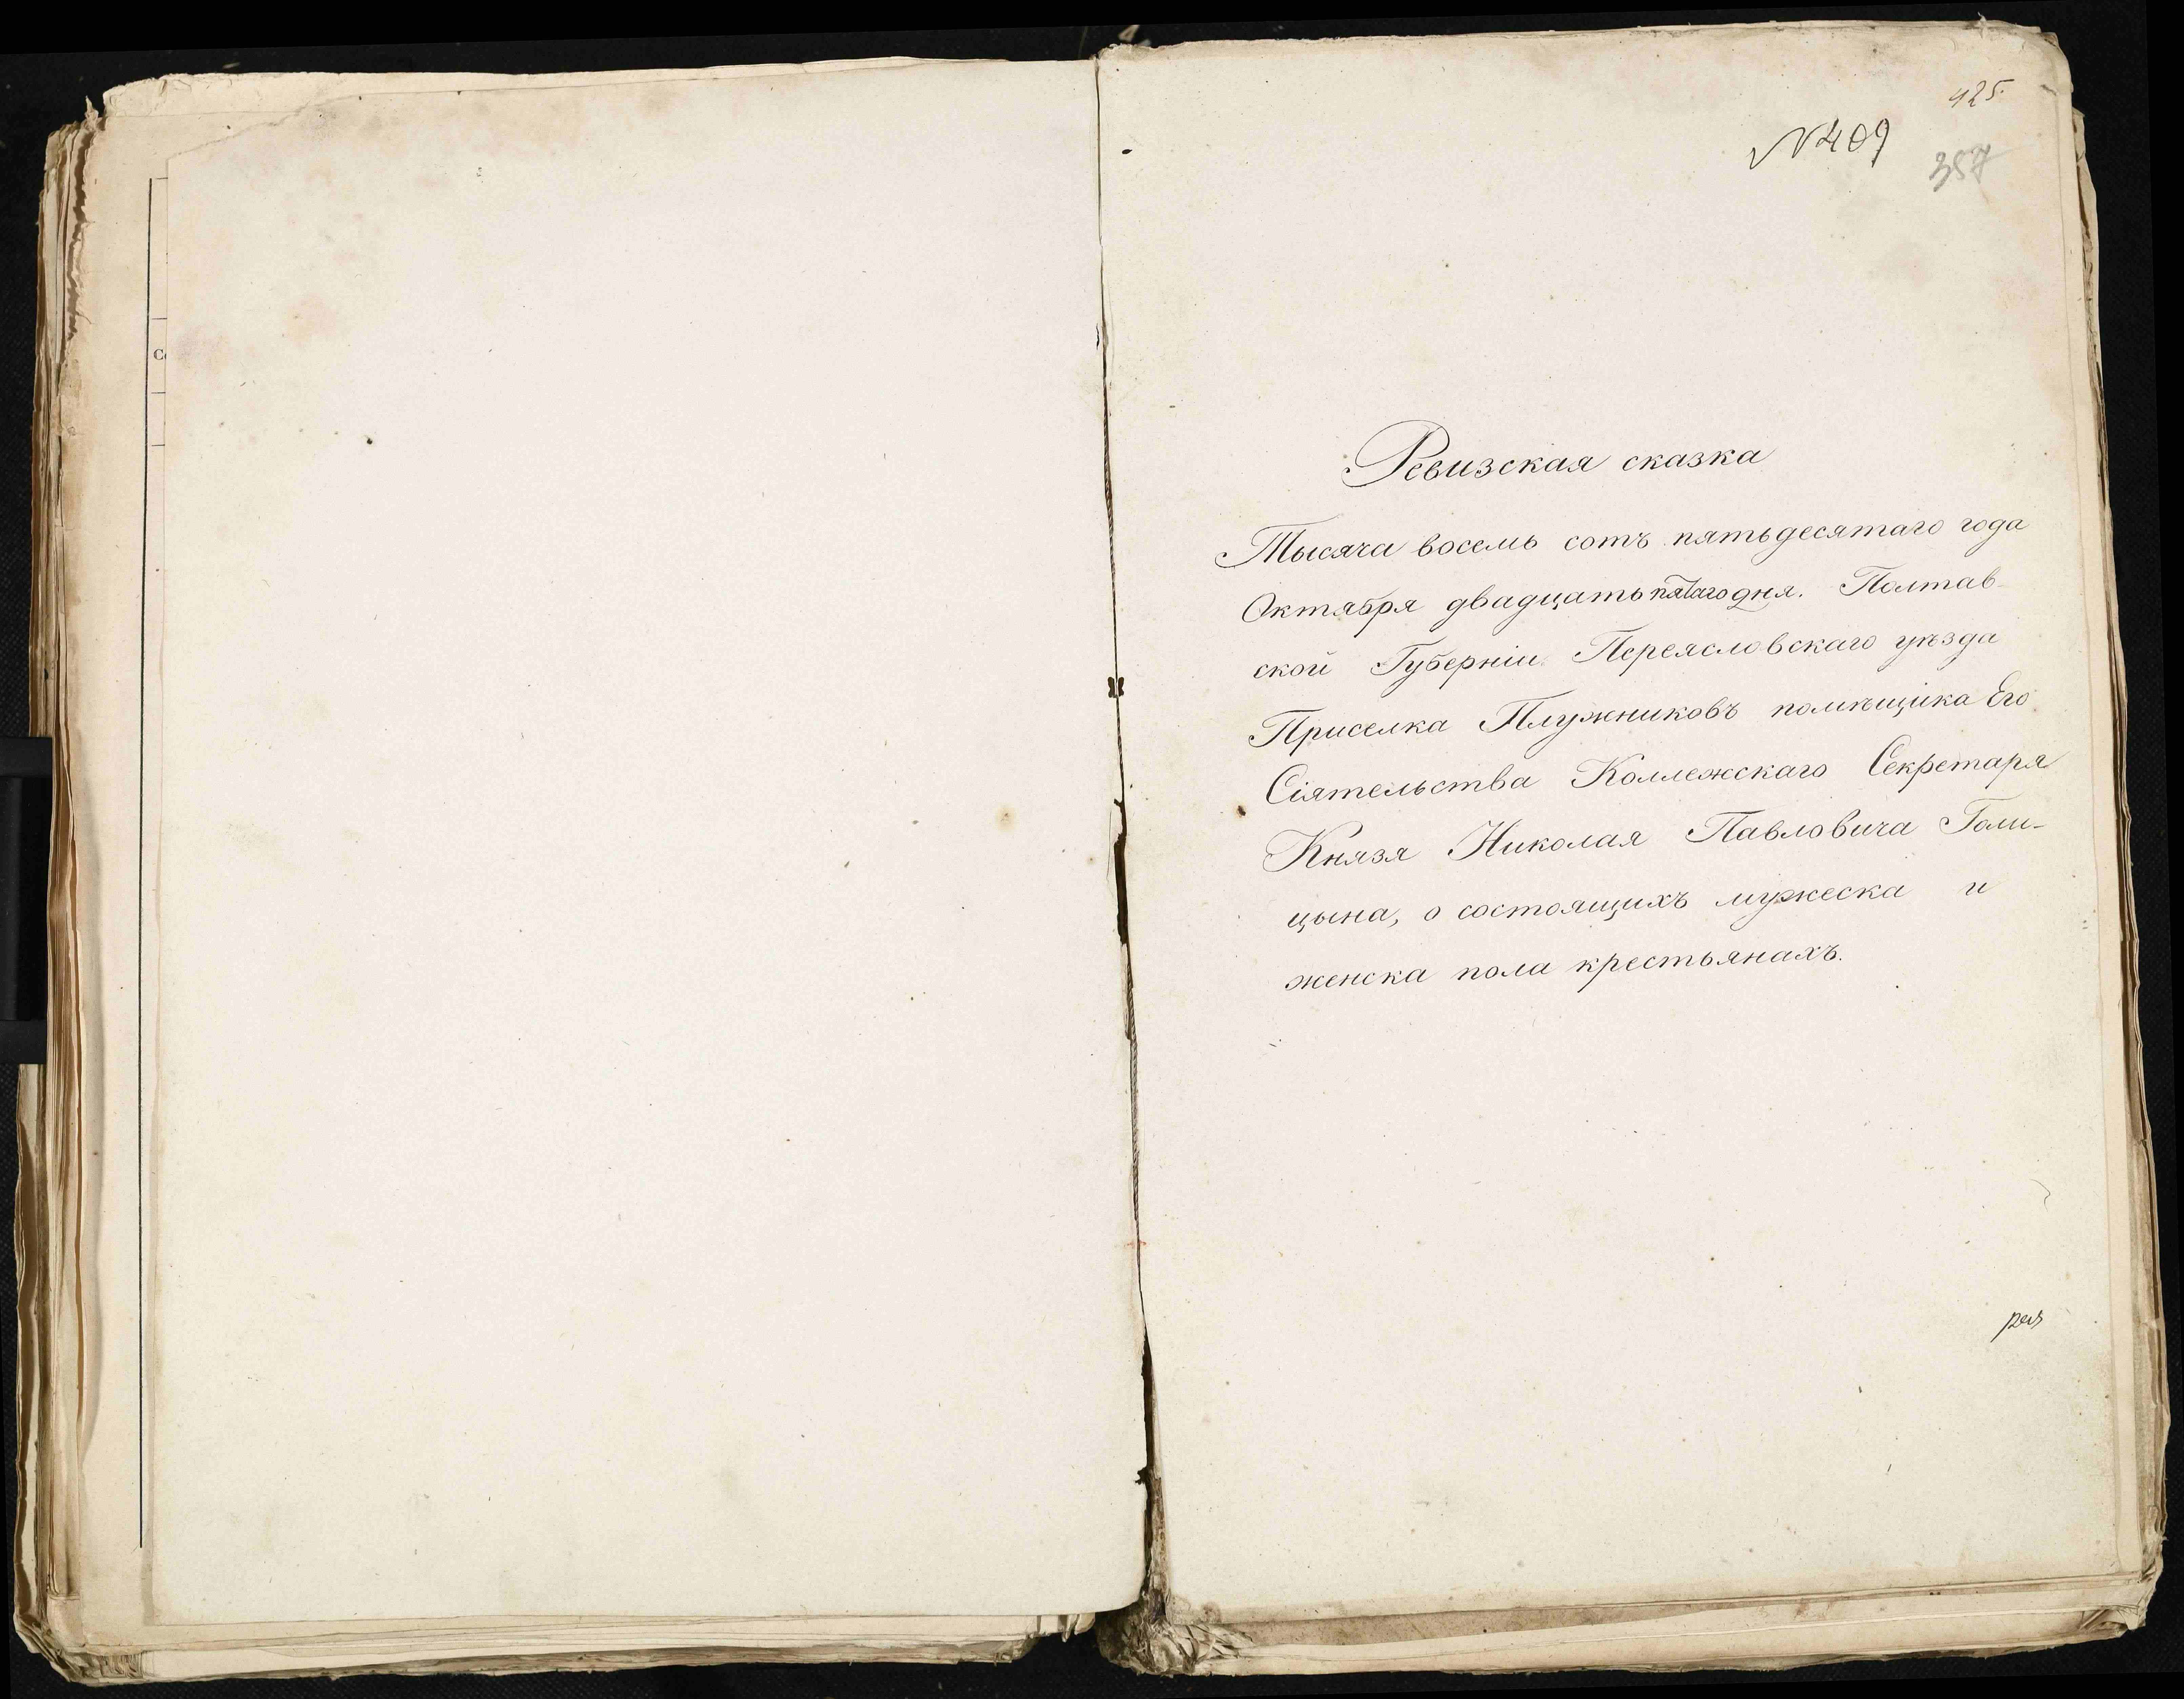 425.
№ 409
357
Ревизская сказка
Тысяча восемь сотъ пятьдесятаго года
Октября двадцать пятаго дня. Полтав-
ской Губерніи Переясловскаго уѣзда
Приселка Плужниковъ помѣщика Его
Сіятельства Коллежскаго Секретаря
Князя Николая Павловича Голи-
цына, о состоящихъ мужеска и
женска пола крестьянахъ.